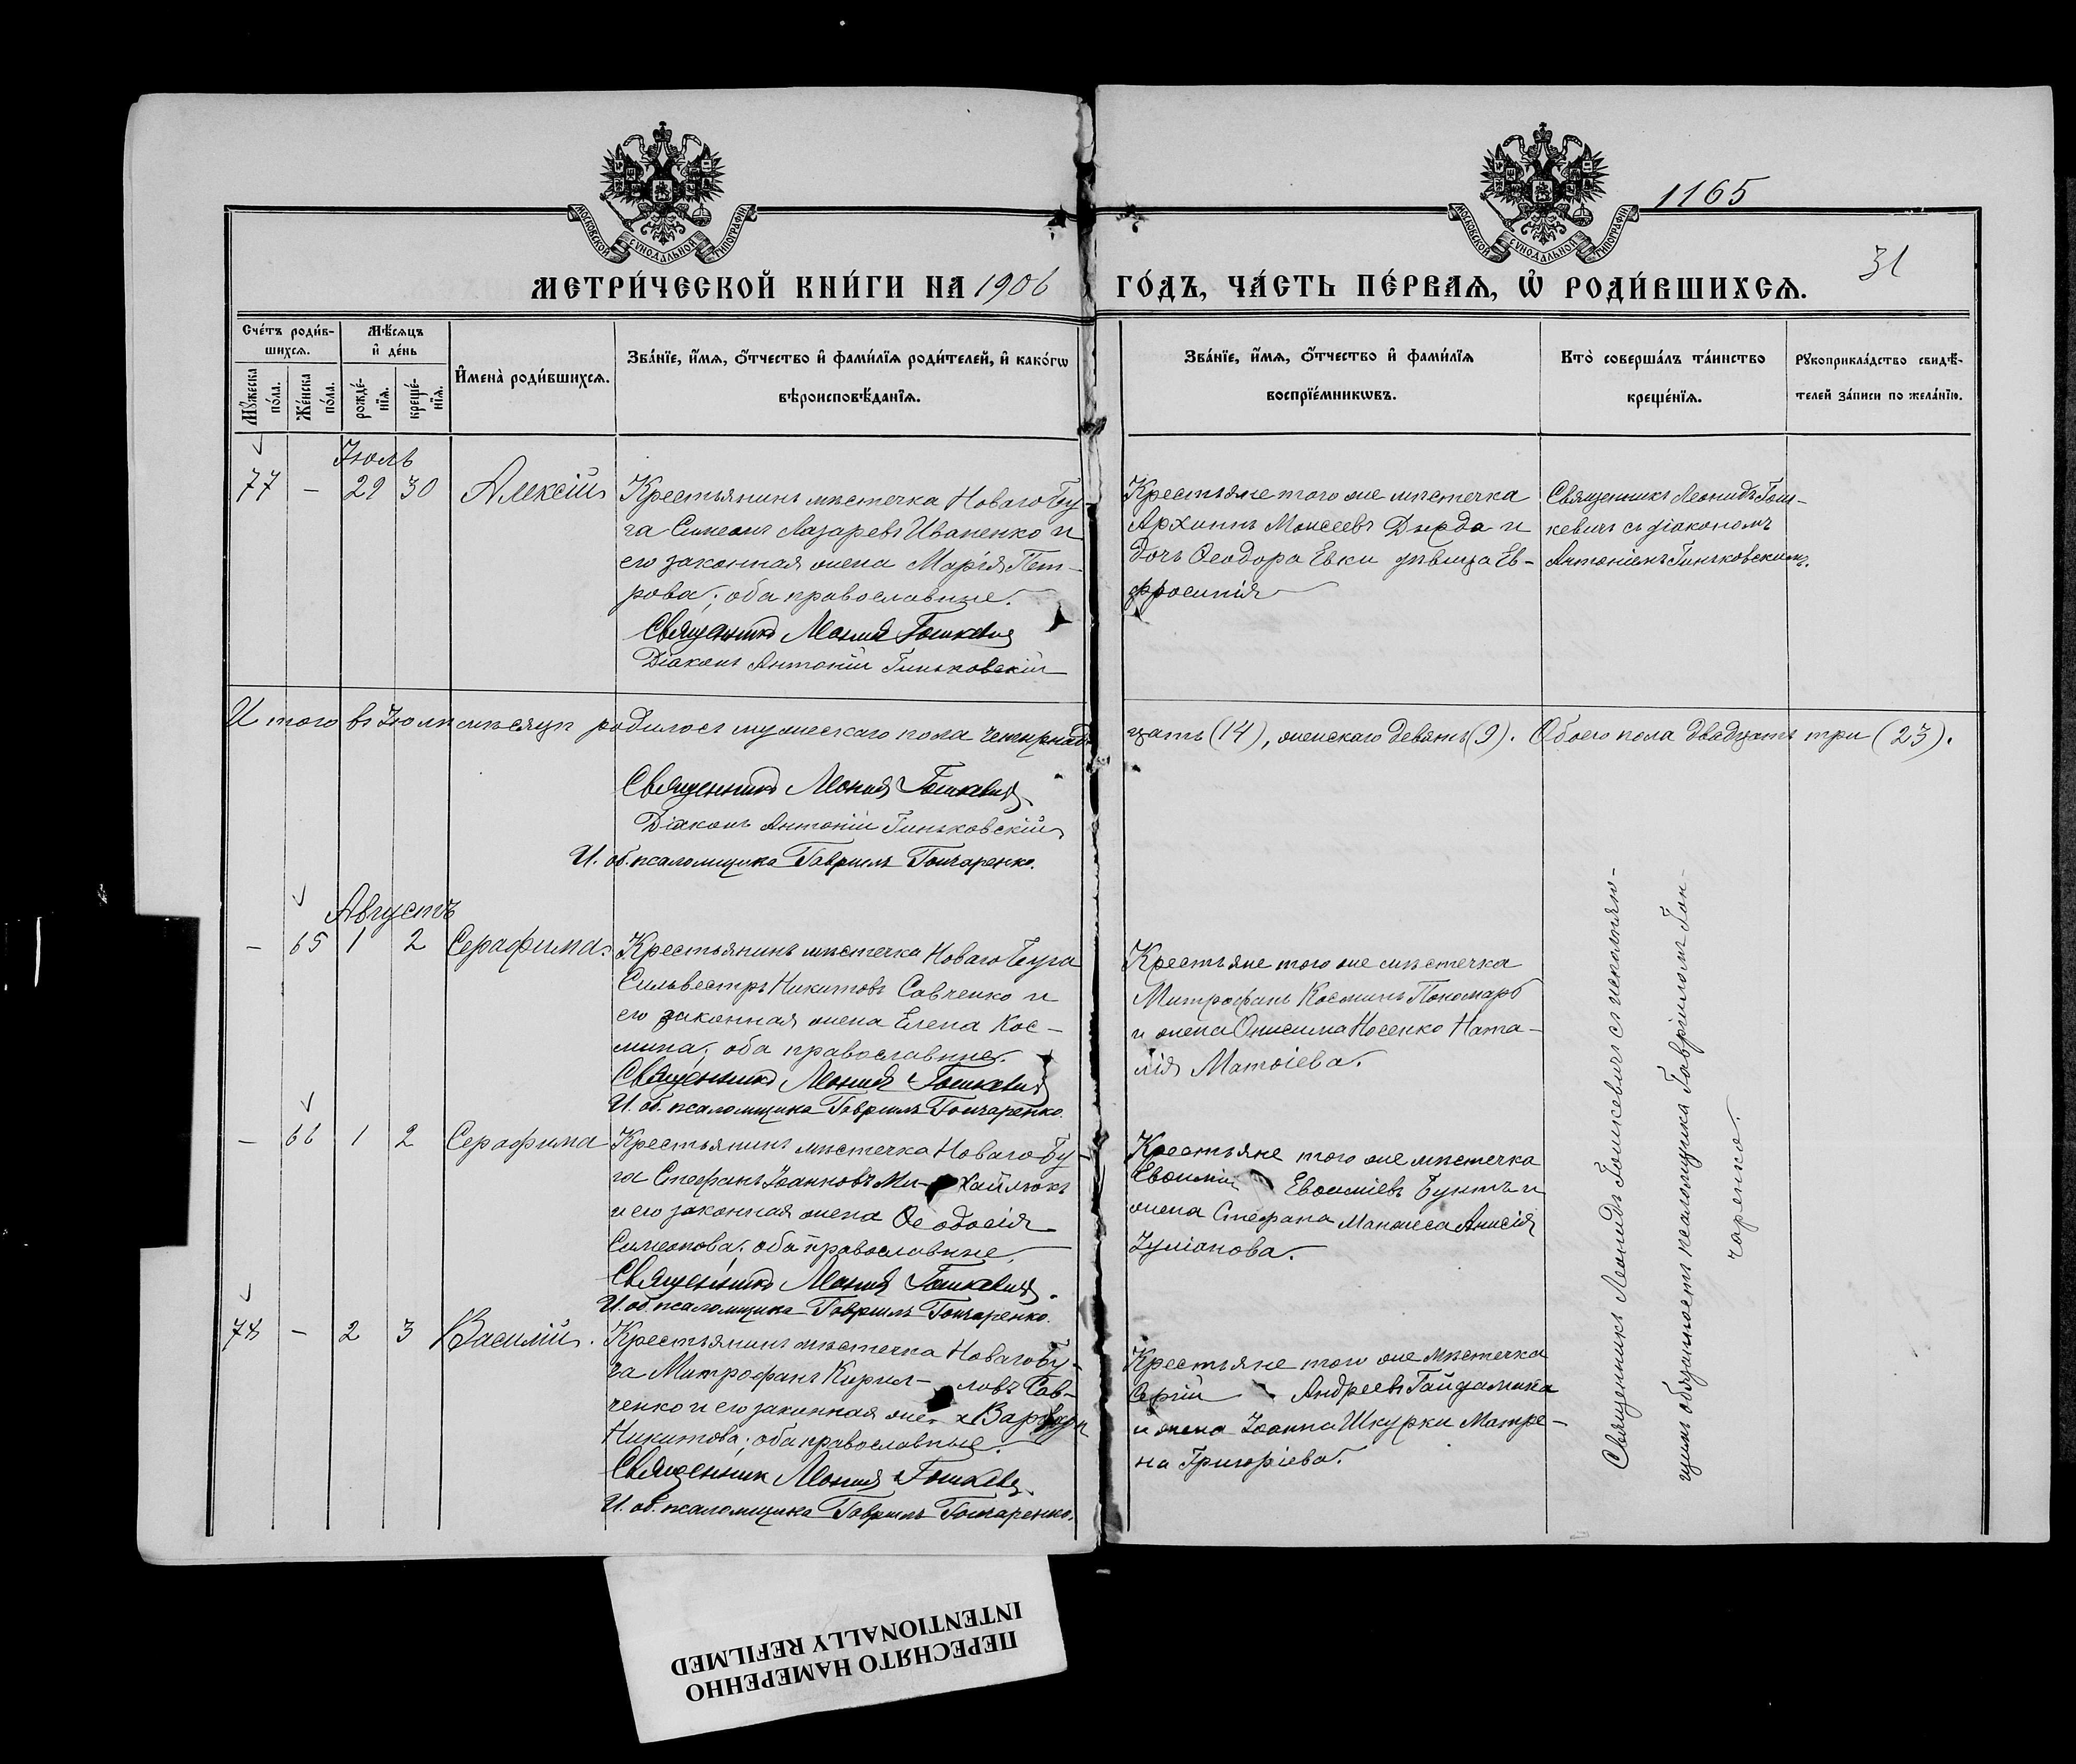 1165
31
МОСКОВСКОЙ СѴНОДАЛЬНОЙ ТИПОГРАФІИ
МОСКОВСКОЙ СѴНОДАЛЬНОЙ ТИПОГРАФІИ
МЕТРИ́ЧЕСКОЙ КНИ́ГИ НА 1906 ГО́ДЪ, ЧА́СТЬ ПЕ́РВАѦ, Ѡ҆ РОДИ́ВШИХСѦ.
Сче́тъ роди́в-
шихсѧ.
Мꙋ́жеска
по́ла.
Же́нска
по́ла.
Мѣ́сѧцъ
и҆ де́нь
рожде́-
нїѧ.
креще́-
нїѧ.
И҆мена̀ роди́вшихсѧ.
Зва́нїе, и҆́мѧ, ѻ҆́тчество и҆ фами́лїѧ роди́телей, и҆ како́гѡ
вѣроисповѣ́данїѧ.
Зва́нїе, и҆́мѧ, ѻ҆́тчество и҆ фами́лїѧ
воспрїе́мникѡвъ.
Кто̀ соверша́лъ та́инство
креще́нїѧ.
Рꙋкоприкла́дство свидѣ́-
телей за́писи по жела́нїю.
Іюль
77 – 29 30 Алексій
Крестьянинъ мѣстечка Новаго Бу-
га Симеонъ Лазаревъ Иваненко и
его законная жена Марія Пет-
рова; оба православные.
Священникъ Леонидъ Гошкевичъ
Діаконъ Антоній Гиньковскій
Крестьяне того же мѣстечка
Архиппъ Моисеевъ Дырда и
дочь Ѳеодора Евки дѣвица Ев-
фросинія
Священникъ Леонидъ Гош-
кевичъ съ діакономъ
Антоніемъ Гиньковскимъ.
Итого въ Іюлѣ мѣсяцѣ родилось мужескаго пола четырнад-
цать (14), женскаго девять (9). Обоего пола двадцать три (23).
Священникъ Леонидъ Гошкевичъ
Діаконъ Антоній Гиньковскій
И. об. псаломщика Гавріилъ Гончаренко.
Августъ
– 65 1 2 Серафима.
Крестьянинъ мѣстечка Новаго Буга
Сильвестръ Никитовъ Савченко и
его законная жена Елена Кос-
мина; оба православные.
Священникъ Леонидъ Гошкевичъ
И. об. псаломщика Гавріилъ Гончаренко.
Крестьяне того же мѣстечка
Митрофанъ Косминъ Пономарь
и жена Онисима Носенко Ната-
лія Матѳіева.
– 66 1 2 Серафима
Крестьянинъ мѣстечка Новаго Бу-
га Стефанъ Іоанновъ Ми-хайлюкъ
и его законная жена Ѳеодосія
Симеонова; оба православные
Священникъ Леонидъ Гошкевичъ.
И. об. псаломщика Гавріилъ Гончаренко.
Крестьяне того же мѣстечка
Евѳимій Евѳиміевъ Бунтъ и
жена Стефана Анисія
Іуліанова.
78 – 2 3 Василій.
Крестьянинъ мѣстечка Новаго Бу-
га Митрофанъ Кирил-ловъ Сав-
ченко и его законная жена Варвара
Никитова; оба православные.
Священникъ Леонидъ Гошкевичъ.
И. об. псаломщика Гавріилъ Гончаренко.
Крестьяне того же мѣстечка
Сергій Андреевъ Гайдамака
и жена Іоанна Шкурки Матре-
на Григоріева.
Священникъ Леонидъ Гошкевичъ съ исполняю-
щимъ обязанность псаломщика Гавріиломъ Гон-
чаренко.
ПЕРЕСНЯТО НАМЕРЕННО
INTENTIONALLY REFILMED